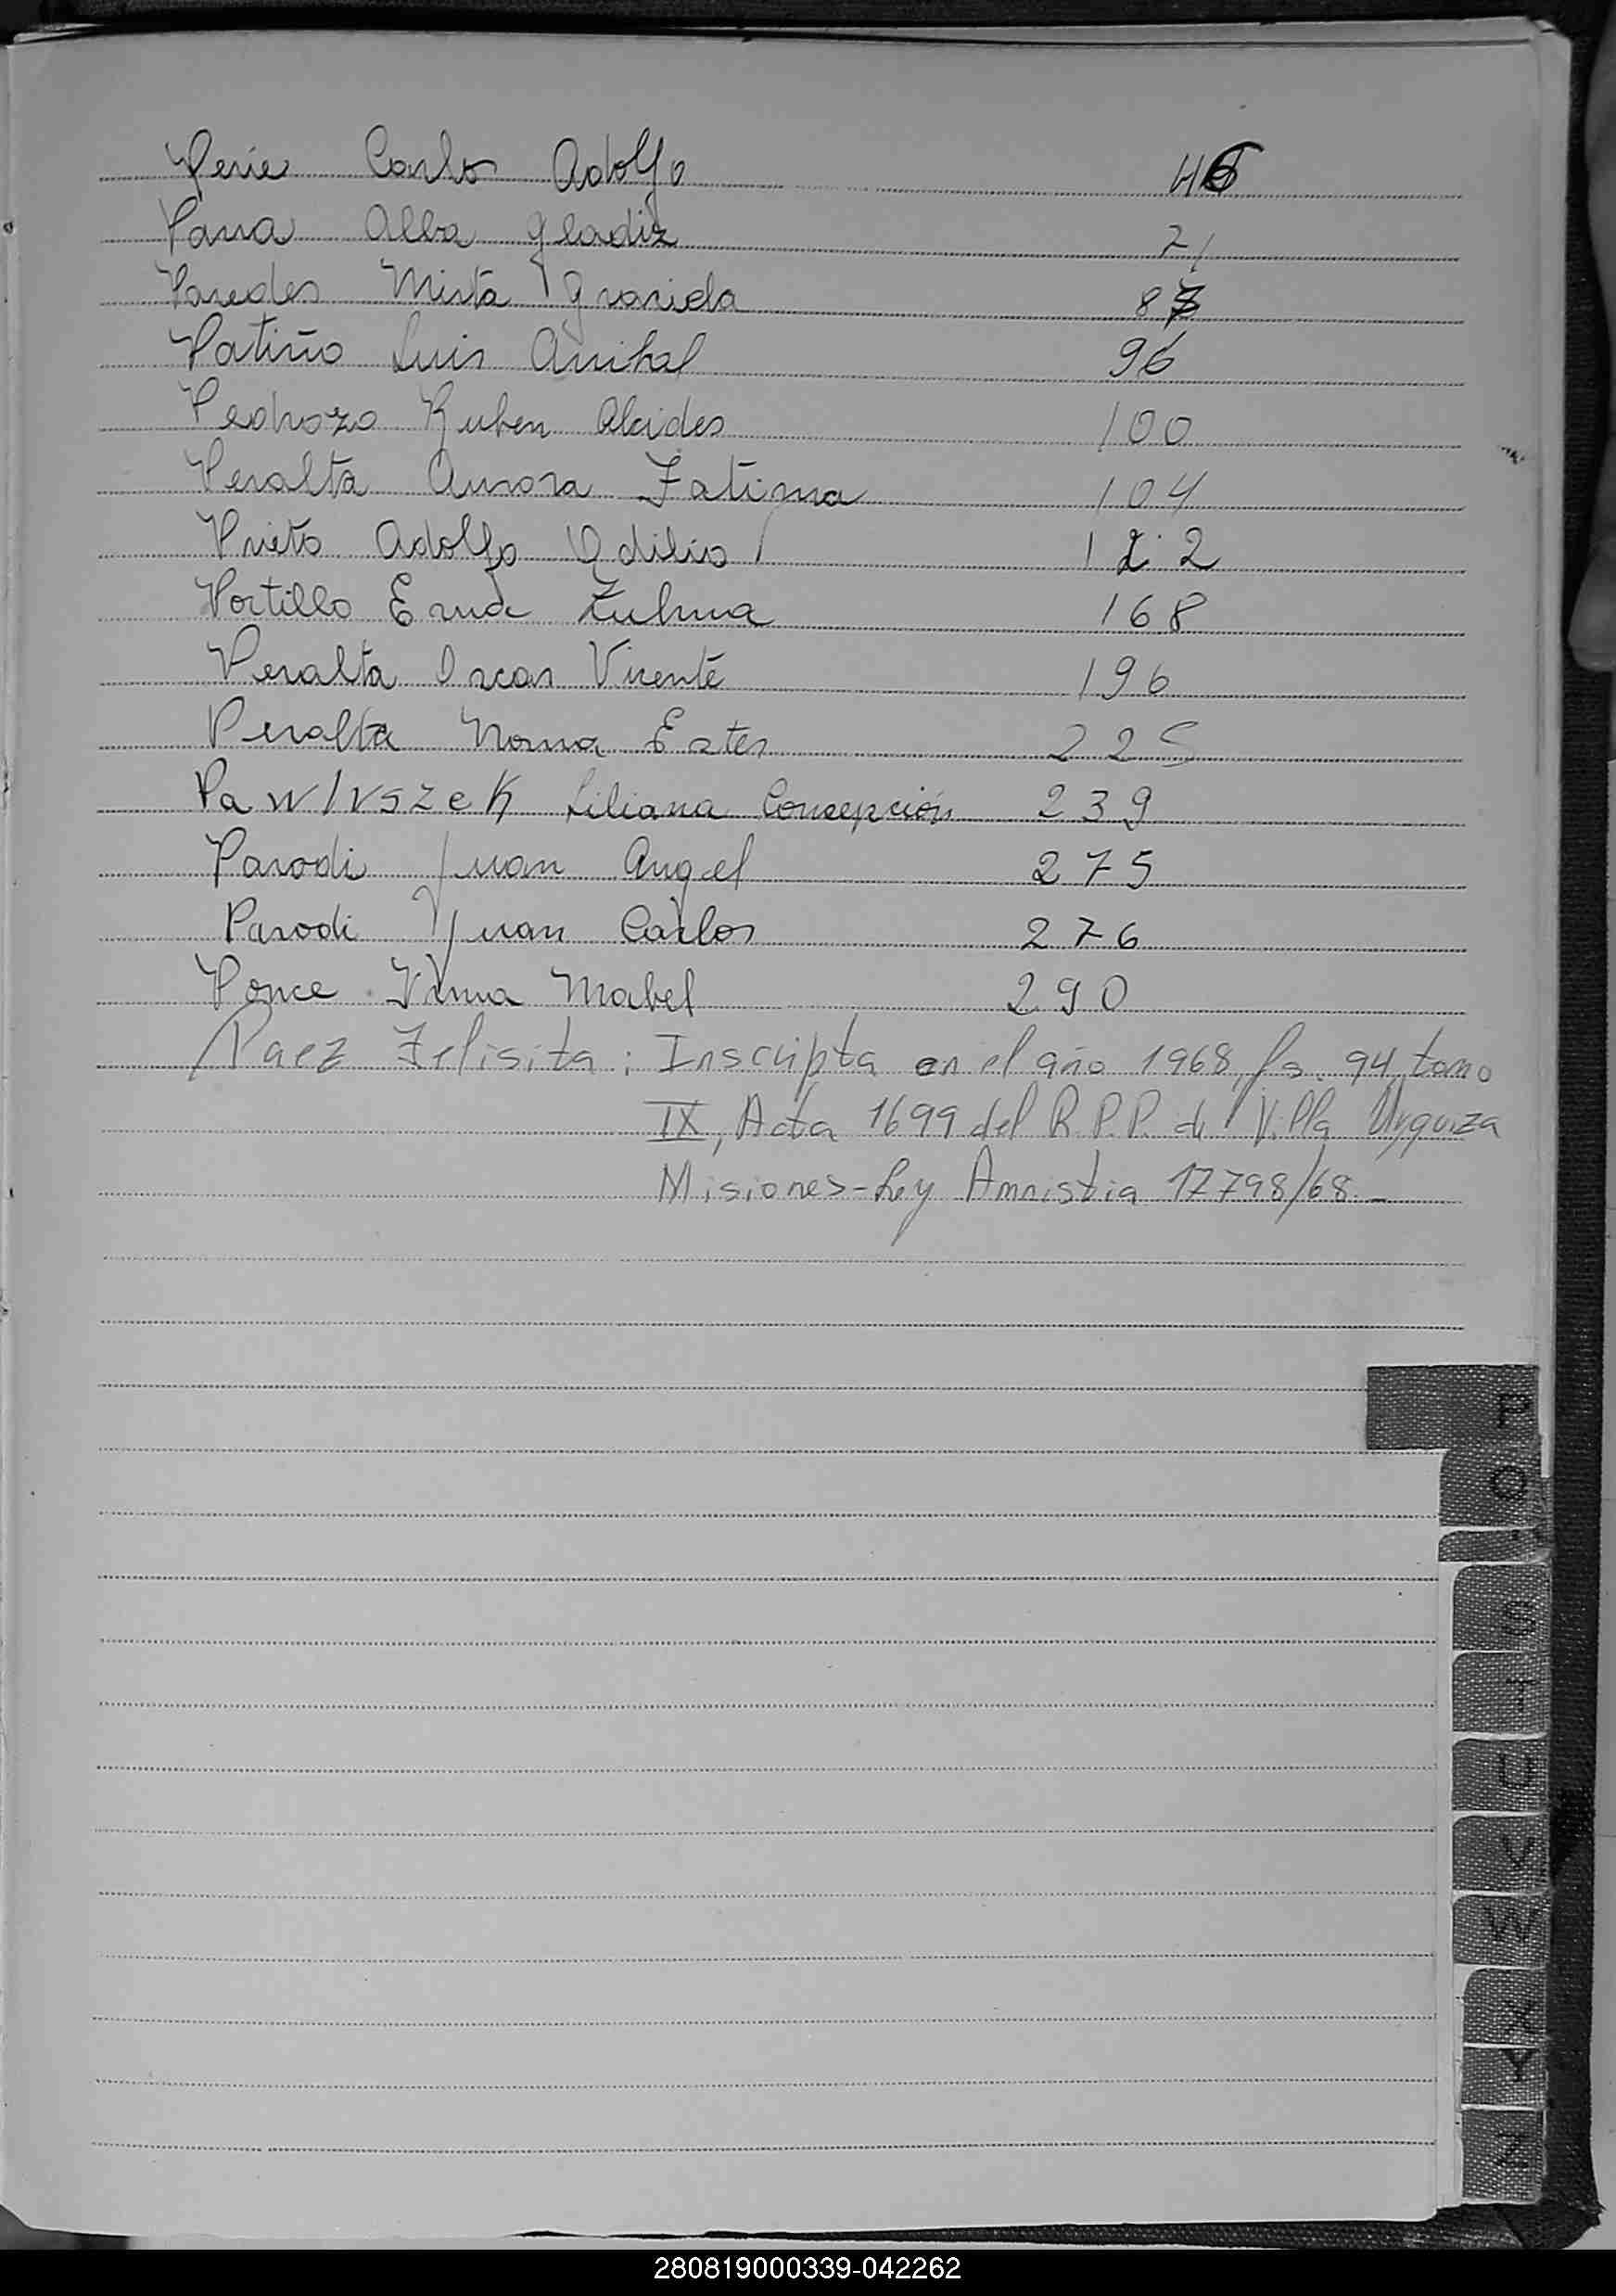 Perie Carlos Adolfo 46
Parra Alba Gladiz 71
Paredes Mirta Graciela 87
Patiño Luis Anibal 96
Pedrozo Ruben Alcides 100
Peralta Aurora Fatima 104
Prieto Adolfo Odilio 122
Portillo Ema Zulma 168
Peralta Oscar Vicente 196
Peralta Norma Ester 225
Liliana Concepción 239
Parodi Juan Angel 275
Parodi Juan Carlos 276
Ponce Irma Mabel 290
Paez Felisita: Inscripta en el año 1968, fs. 94, tomo
IX, Acta 1699 del R.P.P. de Villa Urquiza
Misiones-Ley Amnistia 17798/68.-
P
Q
S
T
U
V
W
X
Y
Z
280819000339-042262